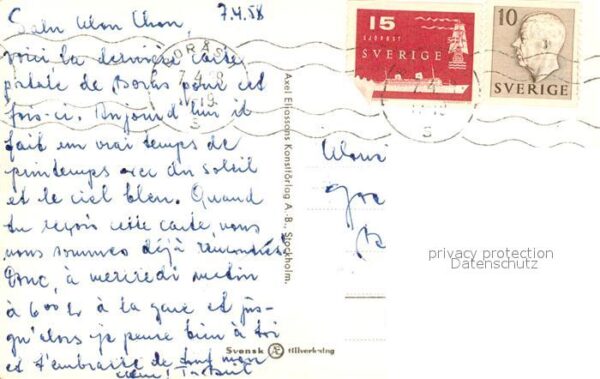 Salu Mon Chou,
7.4.58
voici la dernière carte
postale de Borås pour cet
fois-ci. Aujourd'hui il
fait en vrai temps de
printemps avec du soleil
et le ciel bleu. Quand
tu reçois cette carte, nous
nous sommes déjà rencontrés
Donc, à mercredi matin
à 600 h à la gare et jus-
qu'alors je pense bien à toi
et t'embrasse de tout mon
cœur!
BORÅS
7.4.58
15
SJÖPOST
SVERIGE
10
SVERIGE
Axel Eliassons Konstförlag A.-B., Stockholm.
privacy protection
Datenschutz
Svensk Æ tillverkning